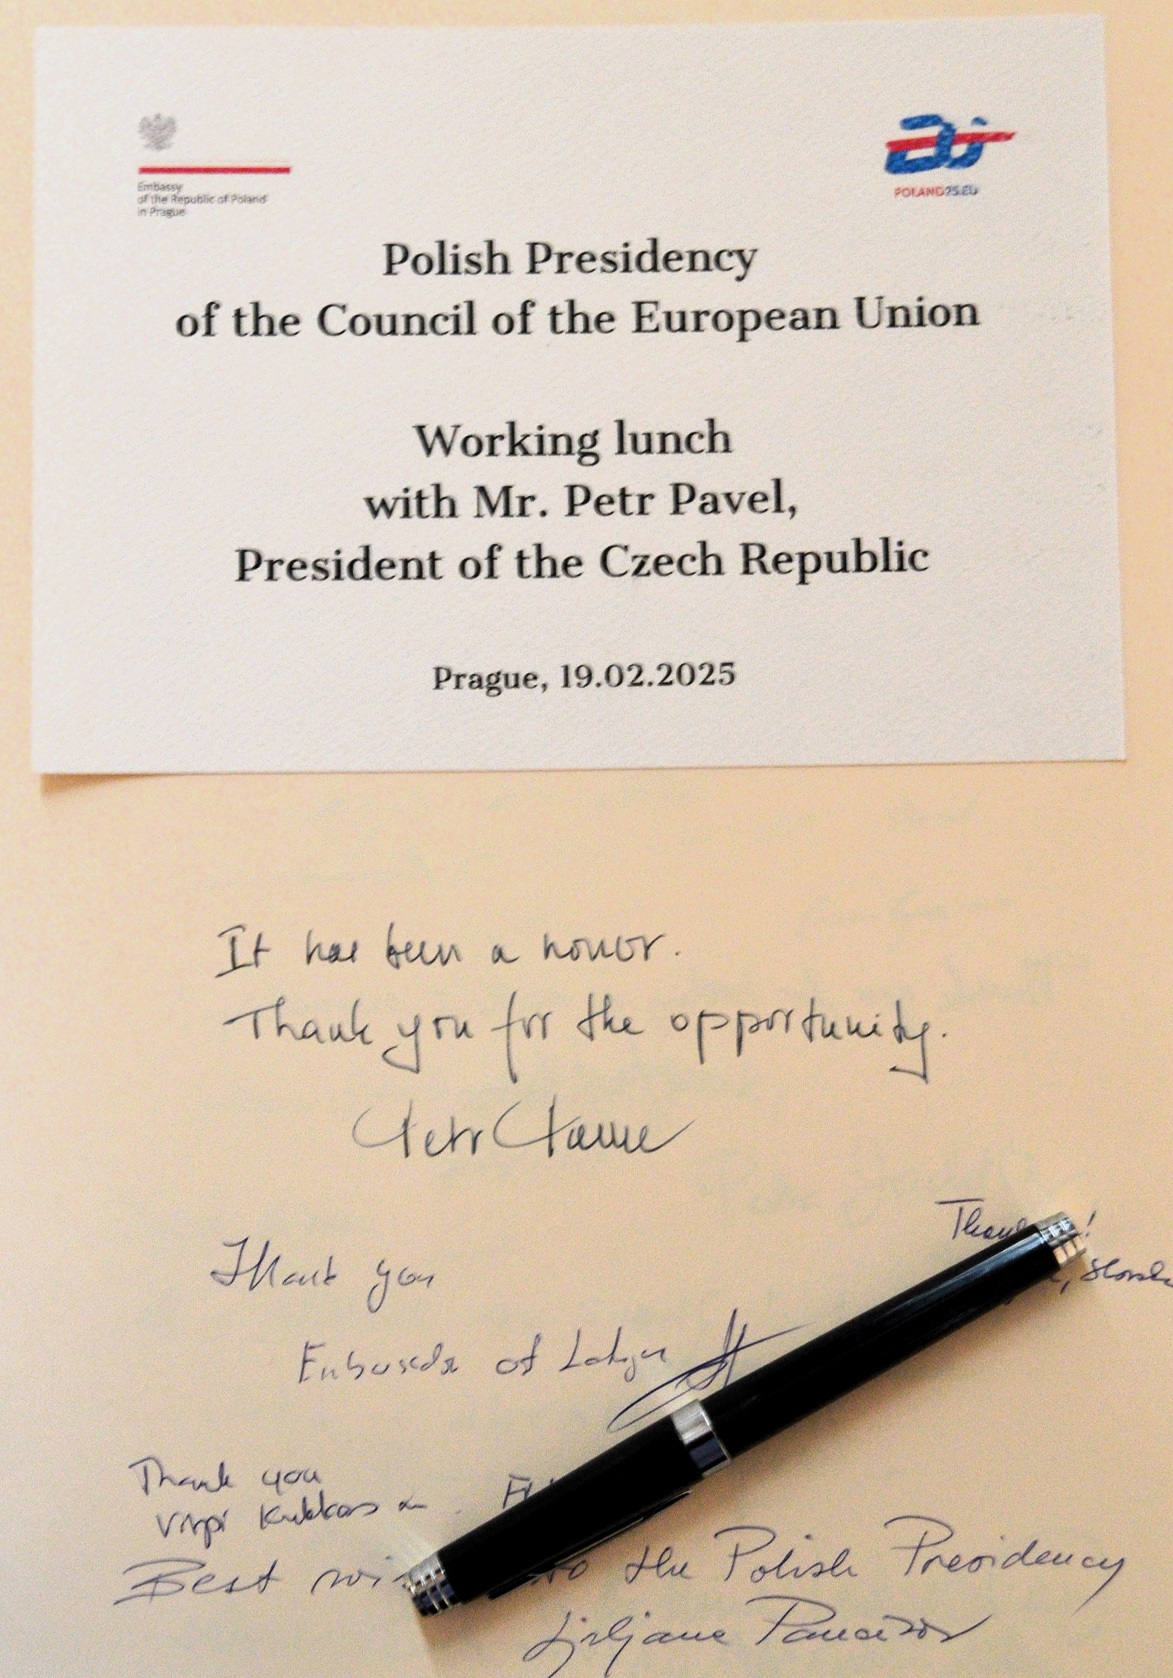 Embassy
of the Republic of Poland
in Prague
POLAND25.EU
Polish Presidency
of the Council of the European Union
Working lunch
with Mr. Petr Pavel,
President of the Czech Republic
Prague, 19.02.2025
It has been a honor.
Thank you for the opportunity.
Petr Pavel
Thank you
of
Thank you
Virpi
Best to the Polish Presidency
Ljiljana